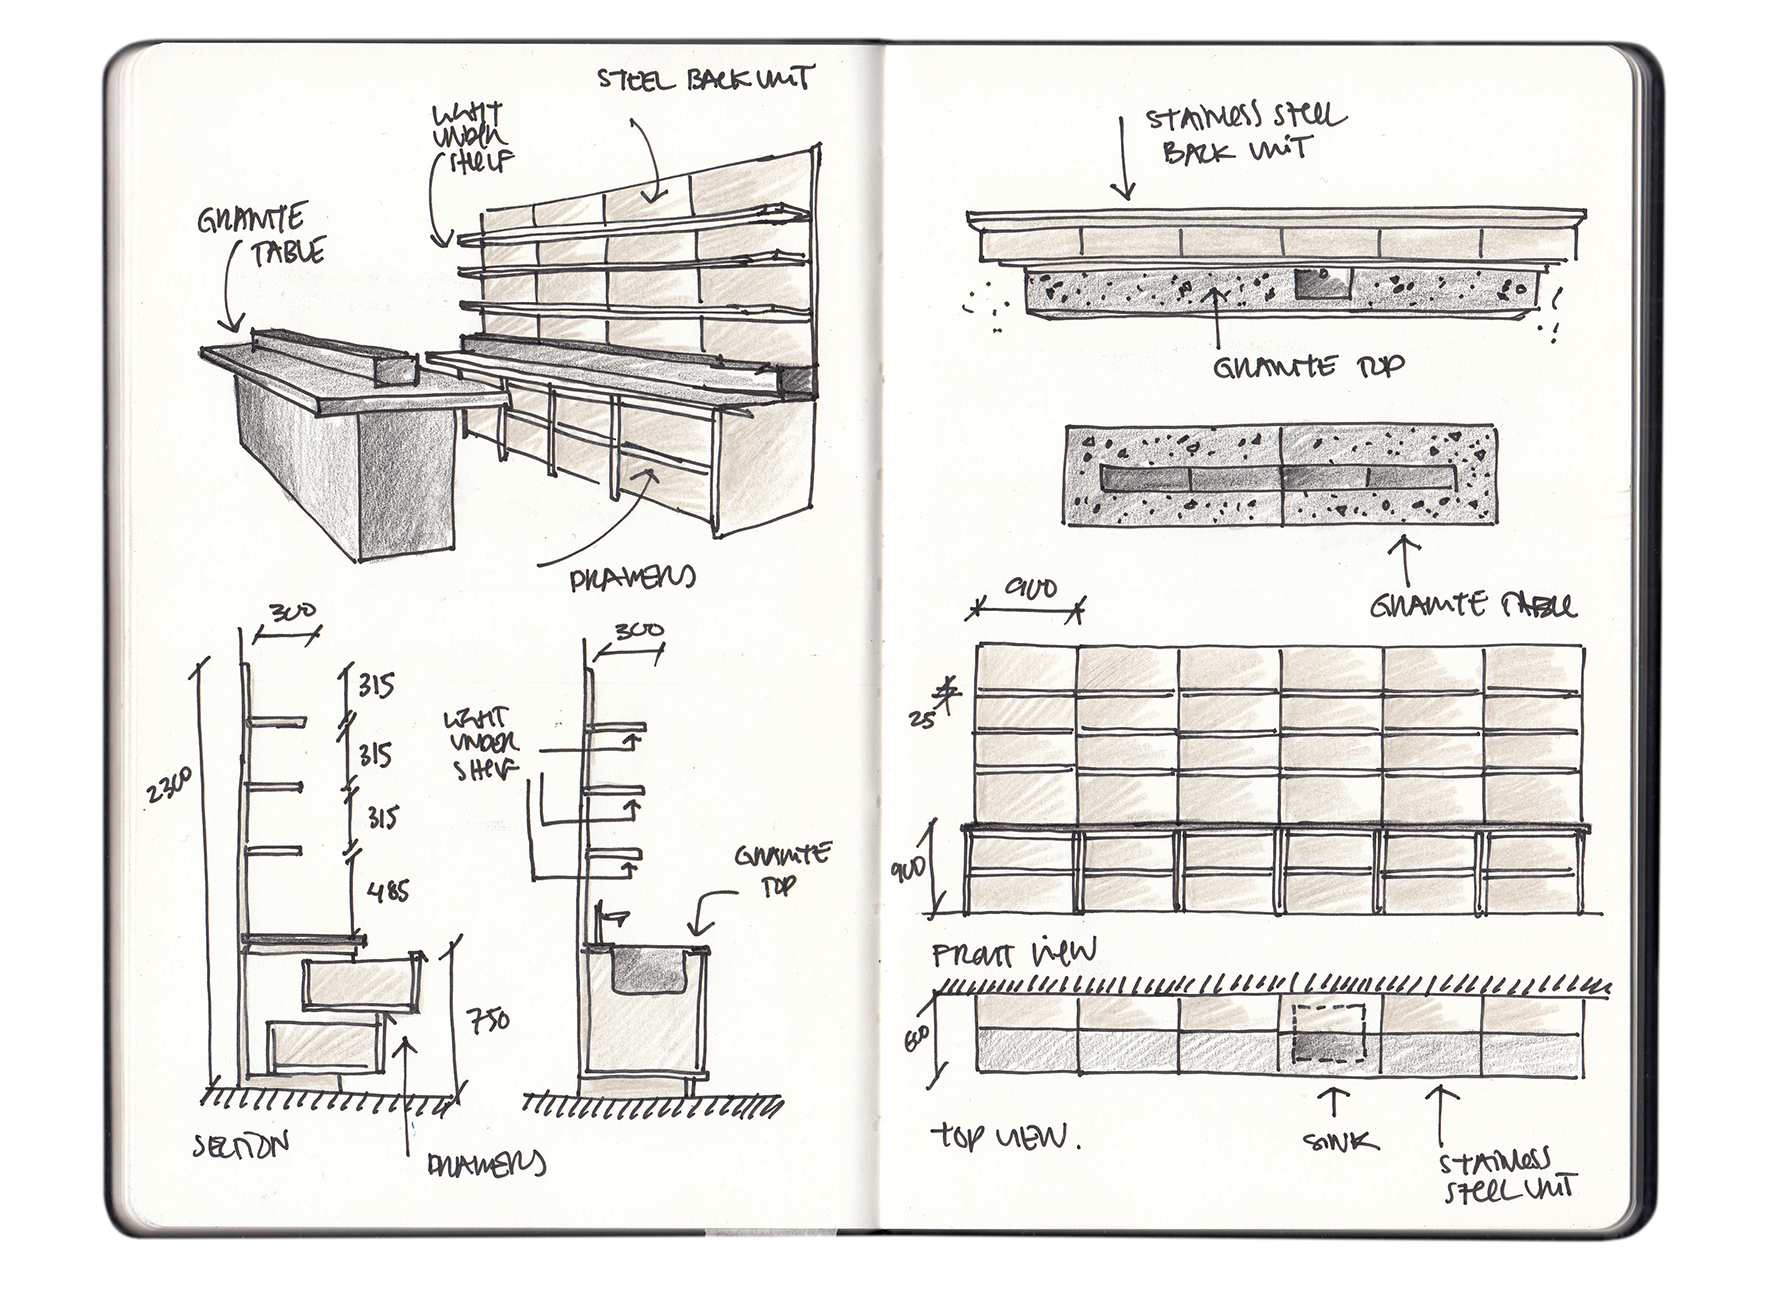 STEEL BACK UNIT
LIGHT
UNDER
SHELF
GRANITE
TABLE
DRAWERS
300
315
315
315
485
2300
750
SECTION
DRAWERS
300
LIGHT
UNDER
SHELF
GRANITE
TOP
STAINLESS STEEL
BACK UNIT
GRANITE TOP
GRANITE TABLE
900
25
900
FRONT VIEW
600
TOP VIEW.
SINK
STAINLESS
STEEL UNIT